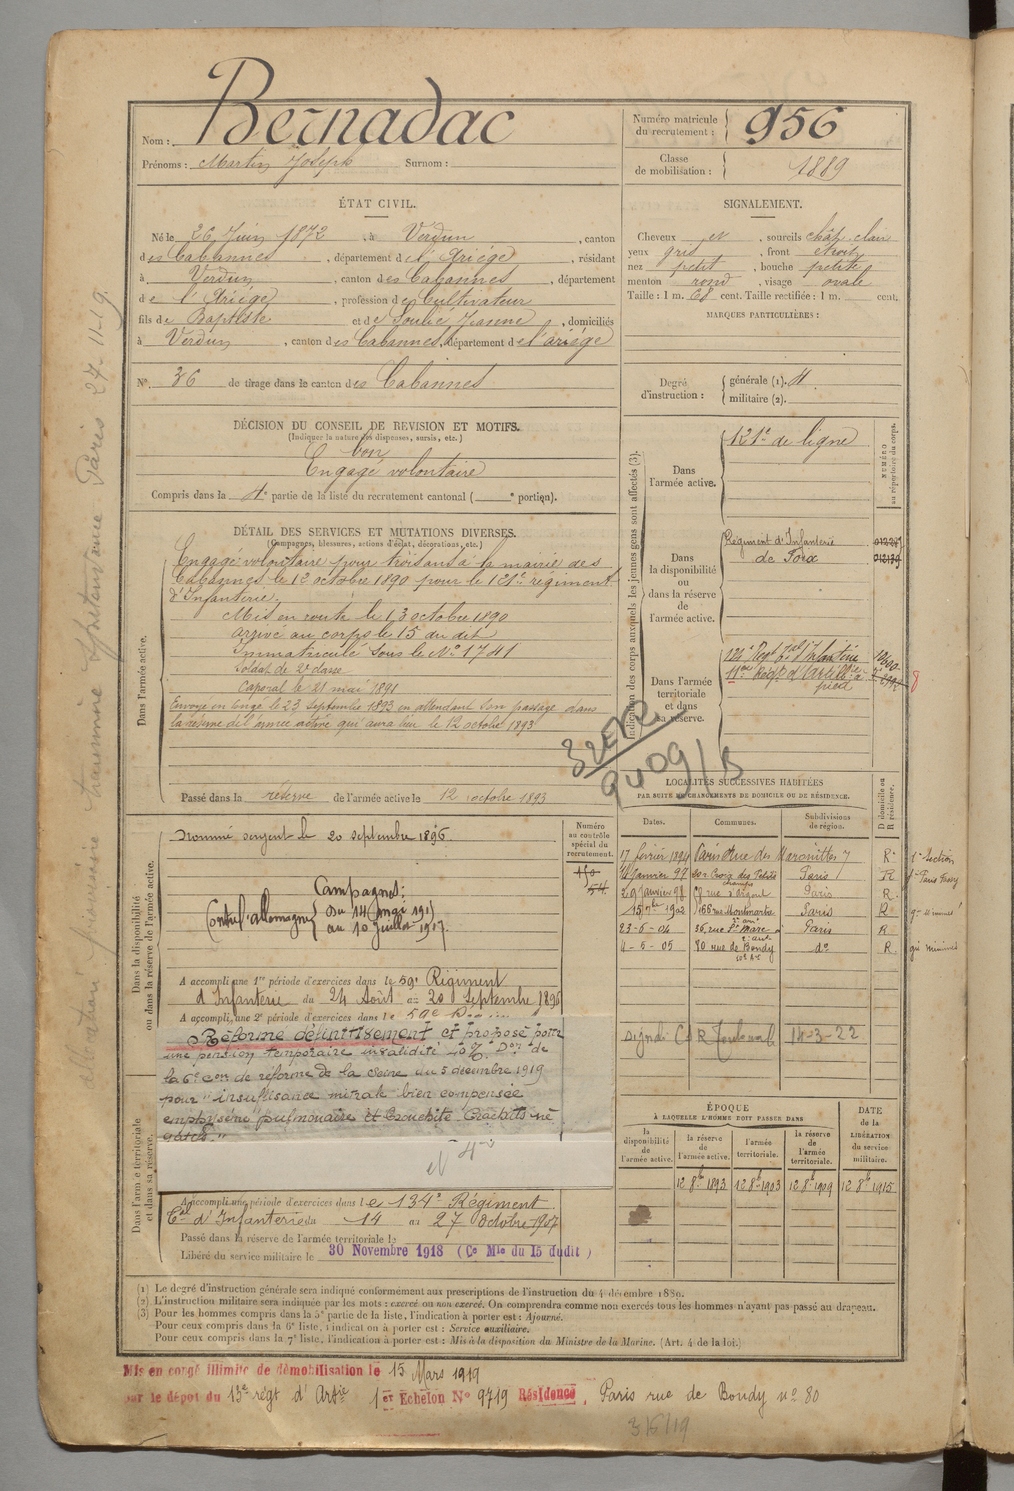 Nom : Bernadac
Prénoms : Martin Joseph Surnom :
Numéro matricule du recrutement : 956
Classe de mobilisation : 1889
ÉTAT CIVIL.
Né le 26 Juin 1872, à Verdun, canton
des Cabannes, département de l'Ariège, résidant
à Verdun, canton des Cabannes, département
de l'Ariège, profession de Cultivateur
fils de Baptiste et de Soulié Jeanne, domiciliés
à Verdun, canton des Cabannes, département de l'ariège
N° 36 de tirage dans le canton des Cabannes
SIGNALEMENT.
Cheveux et, sourcils chât. clair
yeux gris, front étroit
nez petit, bouche petite
menton rond, visage ovale
Taille : 1 m. 68 cent. Taille rectifiée : 1 m. cent.
MARQUES PARTICULIÈRES :
Degré d'instruction : générale (1). 4
militaire (2).
DÉCISION DU CONSEIL DE REVISION ET MOTIFS.
(Indiquer la nature des dispenses, sursis, etc.)
bon
Engagé volontaire
Compris dans la 4e partie de la liste du recrutement cantonal ( e portion).
DÉTAIL DES SERVICES ET MUTATIONS DIVERSES.
(Campagnes, blessures, actions d'éclat, décorations, etc.)
Dans l'armée active.
Engagé volontaire pour trois ans à la mairie des
Cabannes le 12 octobre 1890 pour le 121e régiment
d'Infanterie.
Mis en route le 13 octobre 1890
arrivé au corps le 15 du dit
Immatriculé sous le No 1741
Soldat de 2e classe
Caporal le 21 mai 1891
Envoyé en congé le 23 Septembre 1893 en attendant son passage dans
la réserve de l'armée active qui aura lieu le 12 octobre 1893
Passé dans la réserve de l'armée active le 12 octobre 1893
Indication des corps auxquels les jeunes gens sont affectés (3).
NUMÉRO au répertoire du corps.
Dans l'armée active.
121e de ligne
Dans la disponibilité ou dans la réserve de l'armée active.
Régiment d'Infanterie
de Foix
Dans l'armée territoriale et dans sa réserve.
134e Régt Tal d'infanterie
11me Régt d'Artillie à pied
8
9409/B
Dans la disponibilité ou dans la réserve de l'armée active.
Numéro au contrôle spécial du recrutement.
Nommé sergent le 20 septembre 1896
Campagnes :
Contre l'allemagne du 14 mai 191
au 10 juillet 1917.
A accompli une 1re période d'exercices dans le 59e Régiment
d'Infanterie du 24 Août au 20 Septembre 1896
A accompli une 2e période d'exercices dans le 59e
Réformé définitivement et proposé pour
une pension temporaire invalidité 10 % Don de
la 6e Con de réforme de la Seine du 5 décembre 1919
pour " insuffisance mitrale bien compensée
emphysème pulmonaire et bronchite Crachats né
gatifs "
Dans l'armée territoriale et dans sa réserve.
A accompli une période d'exercices dans le 134e Régiment
Tal d'Infanterie du 14 au 27 Octobre 1907
Passé dans la réserve de l'armée territoriale le
Libéré du service militaire le 30 Novembre 1918 (Ce Mle du 15 dudit)
LOCALITÉS SUCCESSIVES HABITÉES
PAR SUITE DE CHANGEMENTS DE DOMICILE OU DE RÉSIDENCE.
Dates. Communes. Subdivisions de région. D domicile ou R résidence.
17 février 1894 Paris Rue des Maronites 7 R. 1e Section
14 janvier 97 rue Croix des Petits champs Paris R
29 janvier 98 rue d'argout Paris R
15 7bre 1902 166 rue Montmartre Paris R
23-6-04 36, rue St Marc 2e arrt Paris R
4-5-05 80 rue de Bondy 10e Ar do R
18-3-22
ÉPOQUE
À LAQUELLE L'HOMME DOIT PASSER DANS
la disponibilité de l'armée active. la réserve de l'armée active. l'armée territoriale. la réserve de l'armée territoriale.
DATE de la LIBÉRATION du service militaire.
12 8bre 1893 12 8bre 1903 12 8bre 1909 12 8bre 1915
(1) Le degré d'instruction générale sera indiqué conformément aux prescriptions de l'instruction du 4 décembre 1889.
(2) L'instruction militaire sera indiquée par les mots : exercé ou non exercé. On comprendra comme non exercés tous les hommes n'ayant pas passé au drapeau.
(3) Pour les hommes compris dans la 5e partie de la liste, l'indication à porter est : Ajourné.
Pour ceux compris dans la 6e liste, l'indication à porter est : Service auxiliaire.
Pour ceux compris dans la 7e liste, l'indication à porter est : Mis à la disposition du Ministre de la Marine. (Art. 4 de la loi.)
Mis en congé illimité de démobilisation le 15 Mars 1919
par le dépôt du 13e régt d'Artie 1er Échelon No 9719 Résidence, Paris rue de Bondy no 80
3/5/19